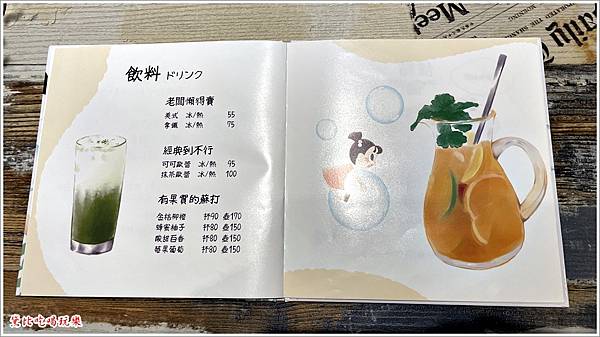 飲料 ドリンク
老闆懶得賣
美式 冰/熱 55
拿鐵 冰/熱 75
經典到不行
可可歐蕾 冰/熱 95
抹茶歐蕾 冰/熱 100
有果實的蘇打
金桔柳橙 杯90 壺170
蜂蜜柚子 杯80 壺150
酸甜百香 杯80 壺150
莓果葡萄 杯80 壺150
Daily
Meet